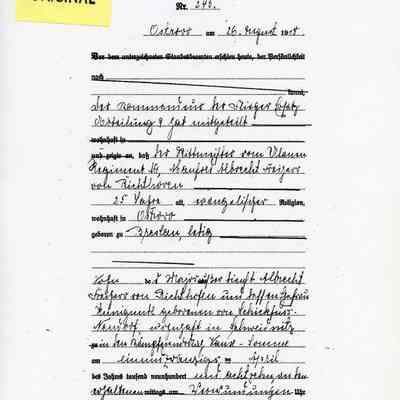 ORIGINAL
Nr. 249.
Ostrowo am 26. August 1918.
Vor dem unterzeichneten Standesbeamten erschien heute, der Persönlichkeit
nach
kannt,
Der Kommandeur der Flieger Ersatz
Abteilung 9 hat mitgeteilt
wohnhaft in
und zeigte an, daß der Rittmeister vom Ulanen
Regiment 1, Manfred Albrecht Freiherr
von Richthofen
25 Jahre alt, evangelischer Religion,
wohnhaft in Ostrowo
geboren zu Breslau, ledig
Sohn des Majors außer Dienst Albrecht
Freiherr von Richthofen und dessen Ehefrau
Kunigunde geborenen von Schickfus-
Neudorf, wohnhaft in Schweidnitz
zu in den Kämpfen Vaux-Somme
am einundzwanzigsten April
des Jahres tausend neunhundert und achtzehn an den
erhaltenen mittags um Verwundungen Uhr